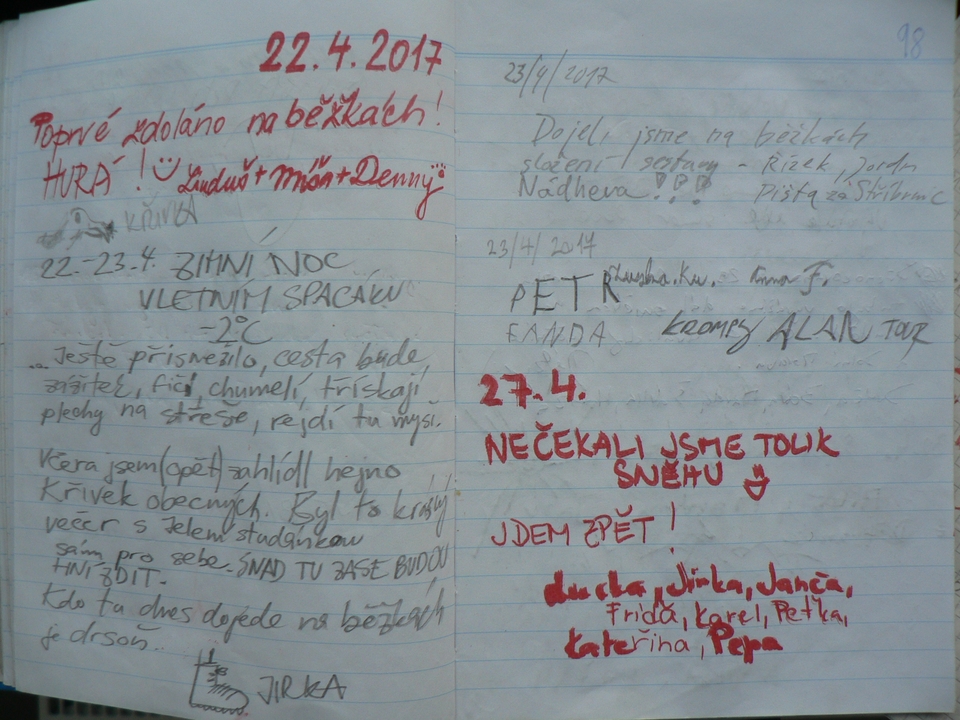 22.4.2017
Poprvé zdoláno na běžkách!
HURÁ! Linduš + Míša + Denny
KŘIVKA
22.-23.4. ZIMNÍ NOC
V LETNÍM SPACÁKU
-2°C
... Ještě přisněžilo, cesta bude
zážitek, fičí, chumelí, třískají
plechy na střeše, rejdí tu myši.
Včera jsem (opět) zahlídl hejno
Křivek obecných. Byl to krásný
večer s Jelení studánkou
sám pro sebe. SNAD TU ZASE BUDOU
HNÍZDIT.
Kdo tu dnes dojede na běžkách
je drsoň..
JIRKA
98
23/4/2017
Dojeli jsme na běžkách
složení sestavy - Řízek, Jordn
Nádhera!!! Pišta za Stříbrnic
23/4/2017
PETR Anna F.
FANDA KROMPY ALAN TOUR
27.4.
NEČEKALI JSME TOLIK
SNĚHU
JDEM ZPĚT!
Lucka, Jirka, Janča,
Frída, Karel, Peťka,
Kateřina, Pepa